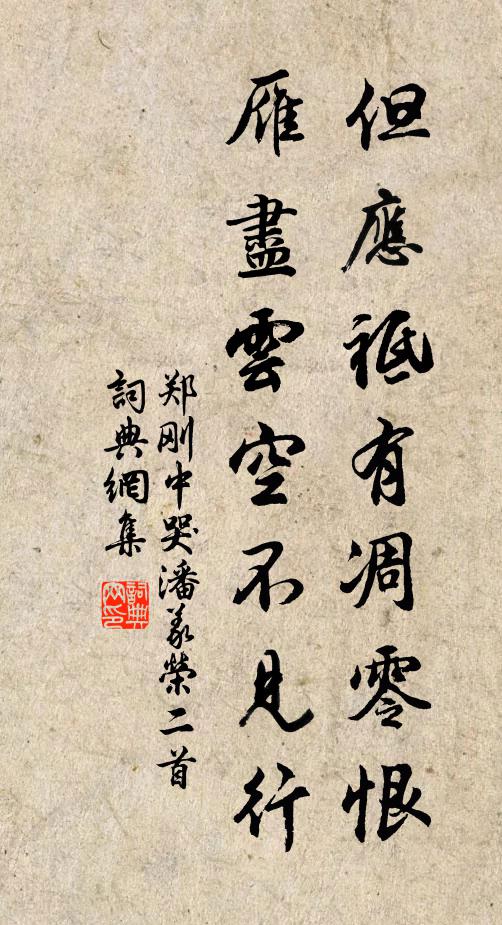 但應祗有凋零恨
雁盡雲空不見行
郑刚中哭潘义榮二首
詞典網集
詞典
网印